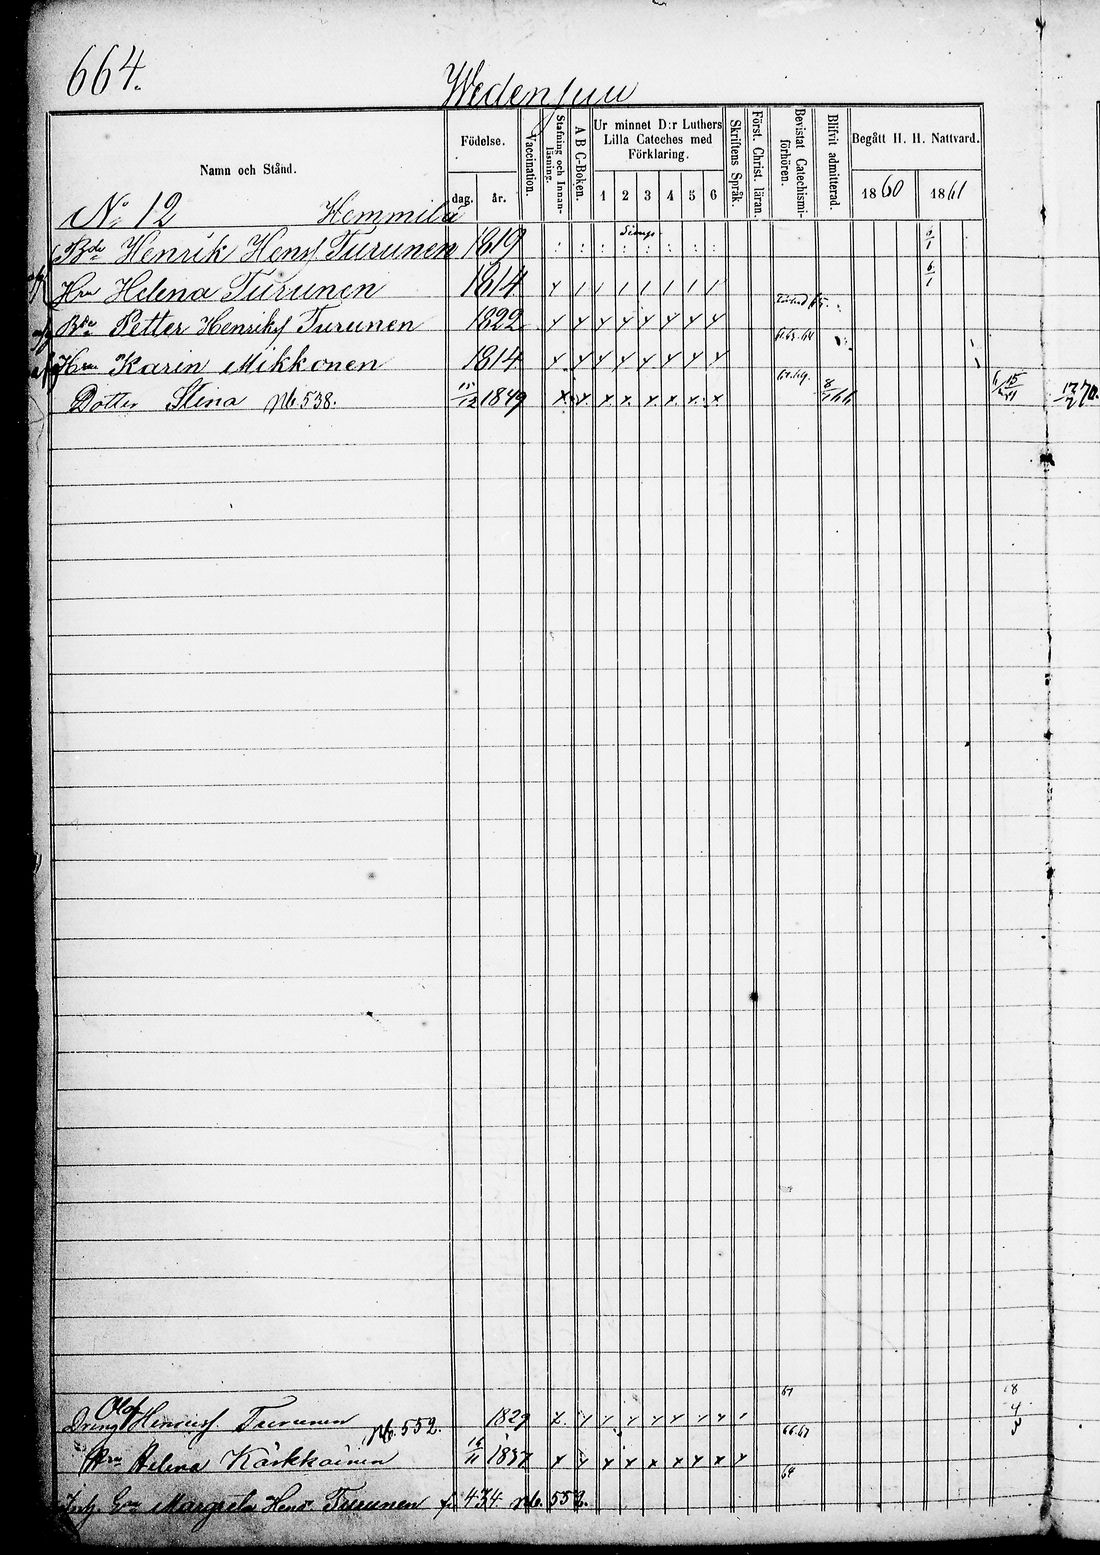 664.
Wedensuu
Namn och Stånd.
Födelse.
dag.
år.
Vaccination.
Stafning och Innan-läsning.
A B C-Boken.
Ur minnet D:r Luthers Lilla Cateches med Förklaring.
1 2 3 4 5 6
Skriftens Språk.
Först. Christ. läran.
Bevistat Catechismi-förhören.
Blifvit admitterad.
Begått H. H. Nattvard.
1860 1861
No 12 Hemmilä
Bde Henrik Hens Turunen 1819 6/1
Hru Helena Turunen 1814 6/1
Bde Petter Henriks Turunen 1822
Hru Karin Mikkonen 1814
Dotter Stina No 538. 1849 8/7 66 15/11 12/2 70.
Olof
Dreng Henriss Turunen No. 552. 1829
Hru Helena Kärkkäinen 16/11 1837
Margreta Hens Turunen 434 No. 552.